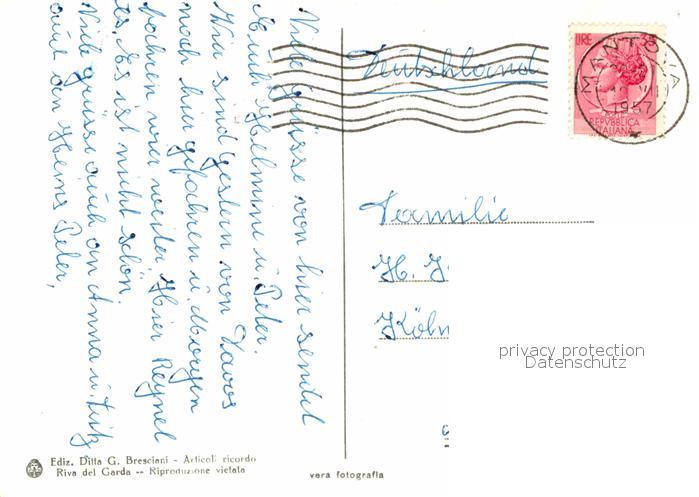 Viele Grüsse von hier sendet
Emil Helmine u. Peter.
Wir sind gestern von Davos
nach hier gefahren u. Morgen
fahren wir weiter. Hier Regnet
es. Es ist nicht schön.
Viele grüsse auch an Anna u. Fritz
auch an Heins Peter.
Deutschland
LIRE
MANTOVA
1957
REPVBBLICA
ITALIANA
Familie
H. J
Köln
privacy protection
Datenschutz
Ediz. Ditta G. Bresciani - Articoli ricordo
Riva del Garda -- Riproduzione vietata
vera fotografia